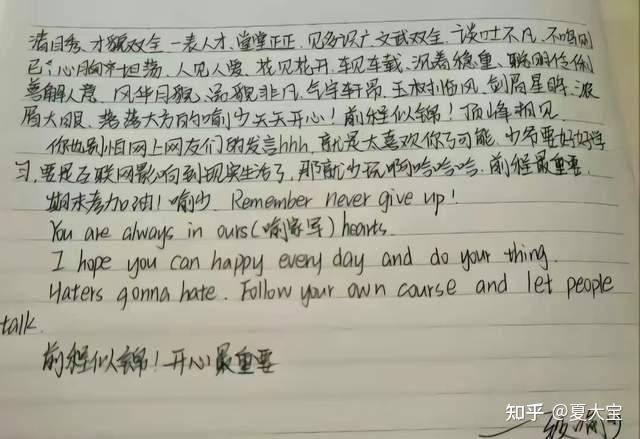 清目秀、才貌双全、一表人才、堂堂正正、见多识广、文武双全、谈吐不凡、不鸣则
已、心胸坦荡、人见人爱、花见花开、车见车载、沉着稳重、聪明伶俐
善解人意、风华月貌、品貌非凡、气宇轩昂、玉树临风、剑眉星眸、浓
眉大眼、落落大方的喻少天天开心！前程似锦！顶峰相见
你也别怕网上网友们的发言hhh，就是太喜欢你了可能，少爷要好好学
习，要是互联网影响到现实生活了，那就少玩啊哈哈哈，前程最重要，
期末考加油！喻少，Remember never give up!
You are always in ours(喻家军)hearts.
I hope you can happy every day and do your thing.
Haters gonna hate. Follow your own course and let people
talk.
前程似锦！开心最重要
知乎 @夏大宝